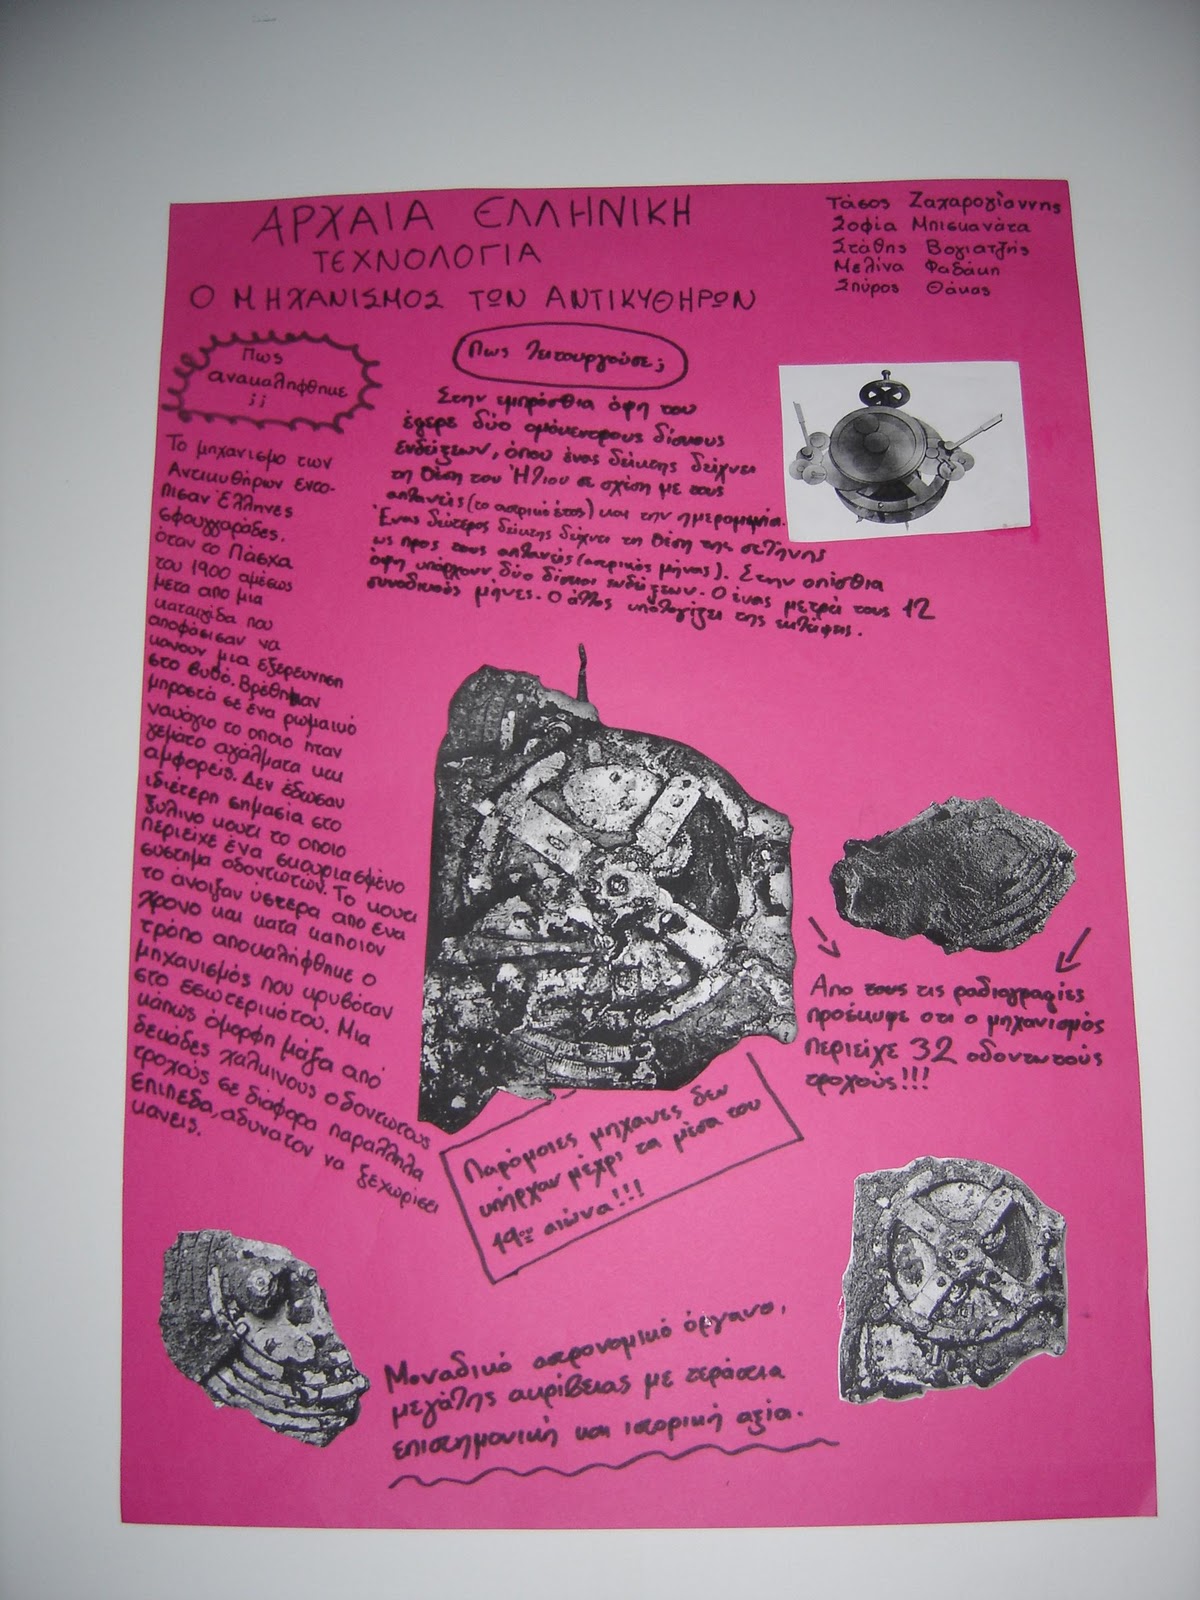 ΑΡΧΑΙΑ ΕΛΛΗΝΙΚΗ
ΤΕΧΝΟΛΟΓΙΑ
Ο ΜΗΧΑΝΙΣΜΟΣ ΤΩΝ ΑΝΤΙΚΥΘΗΡΩΝ
Τάσος Ζαχαρογίαννης
Σοφία Μπισκανάτα
Στάθης Βογιατζής
Μελίνα Φαδάκη
Σπύρος Θάκας
Πως
ανακαλήφθηκε
;;
Το μηχανισμο των
Αντικυθήρων εντο-
πισαν Έλληνες
σφουγγαράδες.
όταν το Πάσχα
του 1900 αμέσως
μετα απο μια
καταιγίδα που
αποφάσισαν να
κανουν μια εξερευνηση
στο βυθό. Βρέθηκαν
μπροστά σε ένα ρωμαικό
ναυάγιο το οποιο ηταν
γεμάτο αγάλματα και
αμφορείς. Δεν έδωσαν
ιδιέτερη σημασία στο
ξύλινο κουτι το οποιο
περιείχε ένα σκουριασμένο
συστημα οδοντωτών. Το κουτι
το άνοιξαν ύστερα απο ένα
χρονο και κατα καποιον
τρόπο αποκαλήφθηκε ο
μηχανισμός που κρυβόταν
στο εσωτερικότου. Μια
κάπως όμορφη μάζα από
δεκάδες χάλκινους οδοντωτους
τροχούς σε διάφορα παράλληλα
επιπεδα, αδυνατον να ξεχωρίσει
κανεις.
Πως λειτουργούσε;
Στην εμπρόσθια όψη του
έφερε δύο ομόκεντρους δίσκους
ενδείξεων, όπου ένας δείκτης δείχνει
τη θέση του Ήλιου σε σχέση με τους
απλανείς (το αστρικό έτος) και την ημερομηνία.
Ένας δεύτερος δείκτης δείχνει τη θέση της σελήνης
ως προς τους απλανείς (αστρικός μήνας). Στην οπίσθια
όψη υπάρχουν δύο δίσκοι ενδείξεων. Ο ένας μετρά τους 12
συνοδικούς μήνες. Ο άλλος υπολογίζει της εκλείψεις.
Απο τους τις ραδιογραφίες
προέκυψε οτι ο μηχανισμός
περιείχε 32 οδοντωτούς
τροχούς!!!
Παρόμοιες μηχανες δεν
υπήρχαν μέχρι τα μέσα του
19ου αιώνα!!!
Μοναδικό αστρονομικό όργανο,
μεγάλης ακρίβειας με τεράστια
επιστημονική και ιστορική αξία.